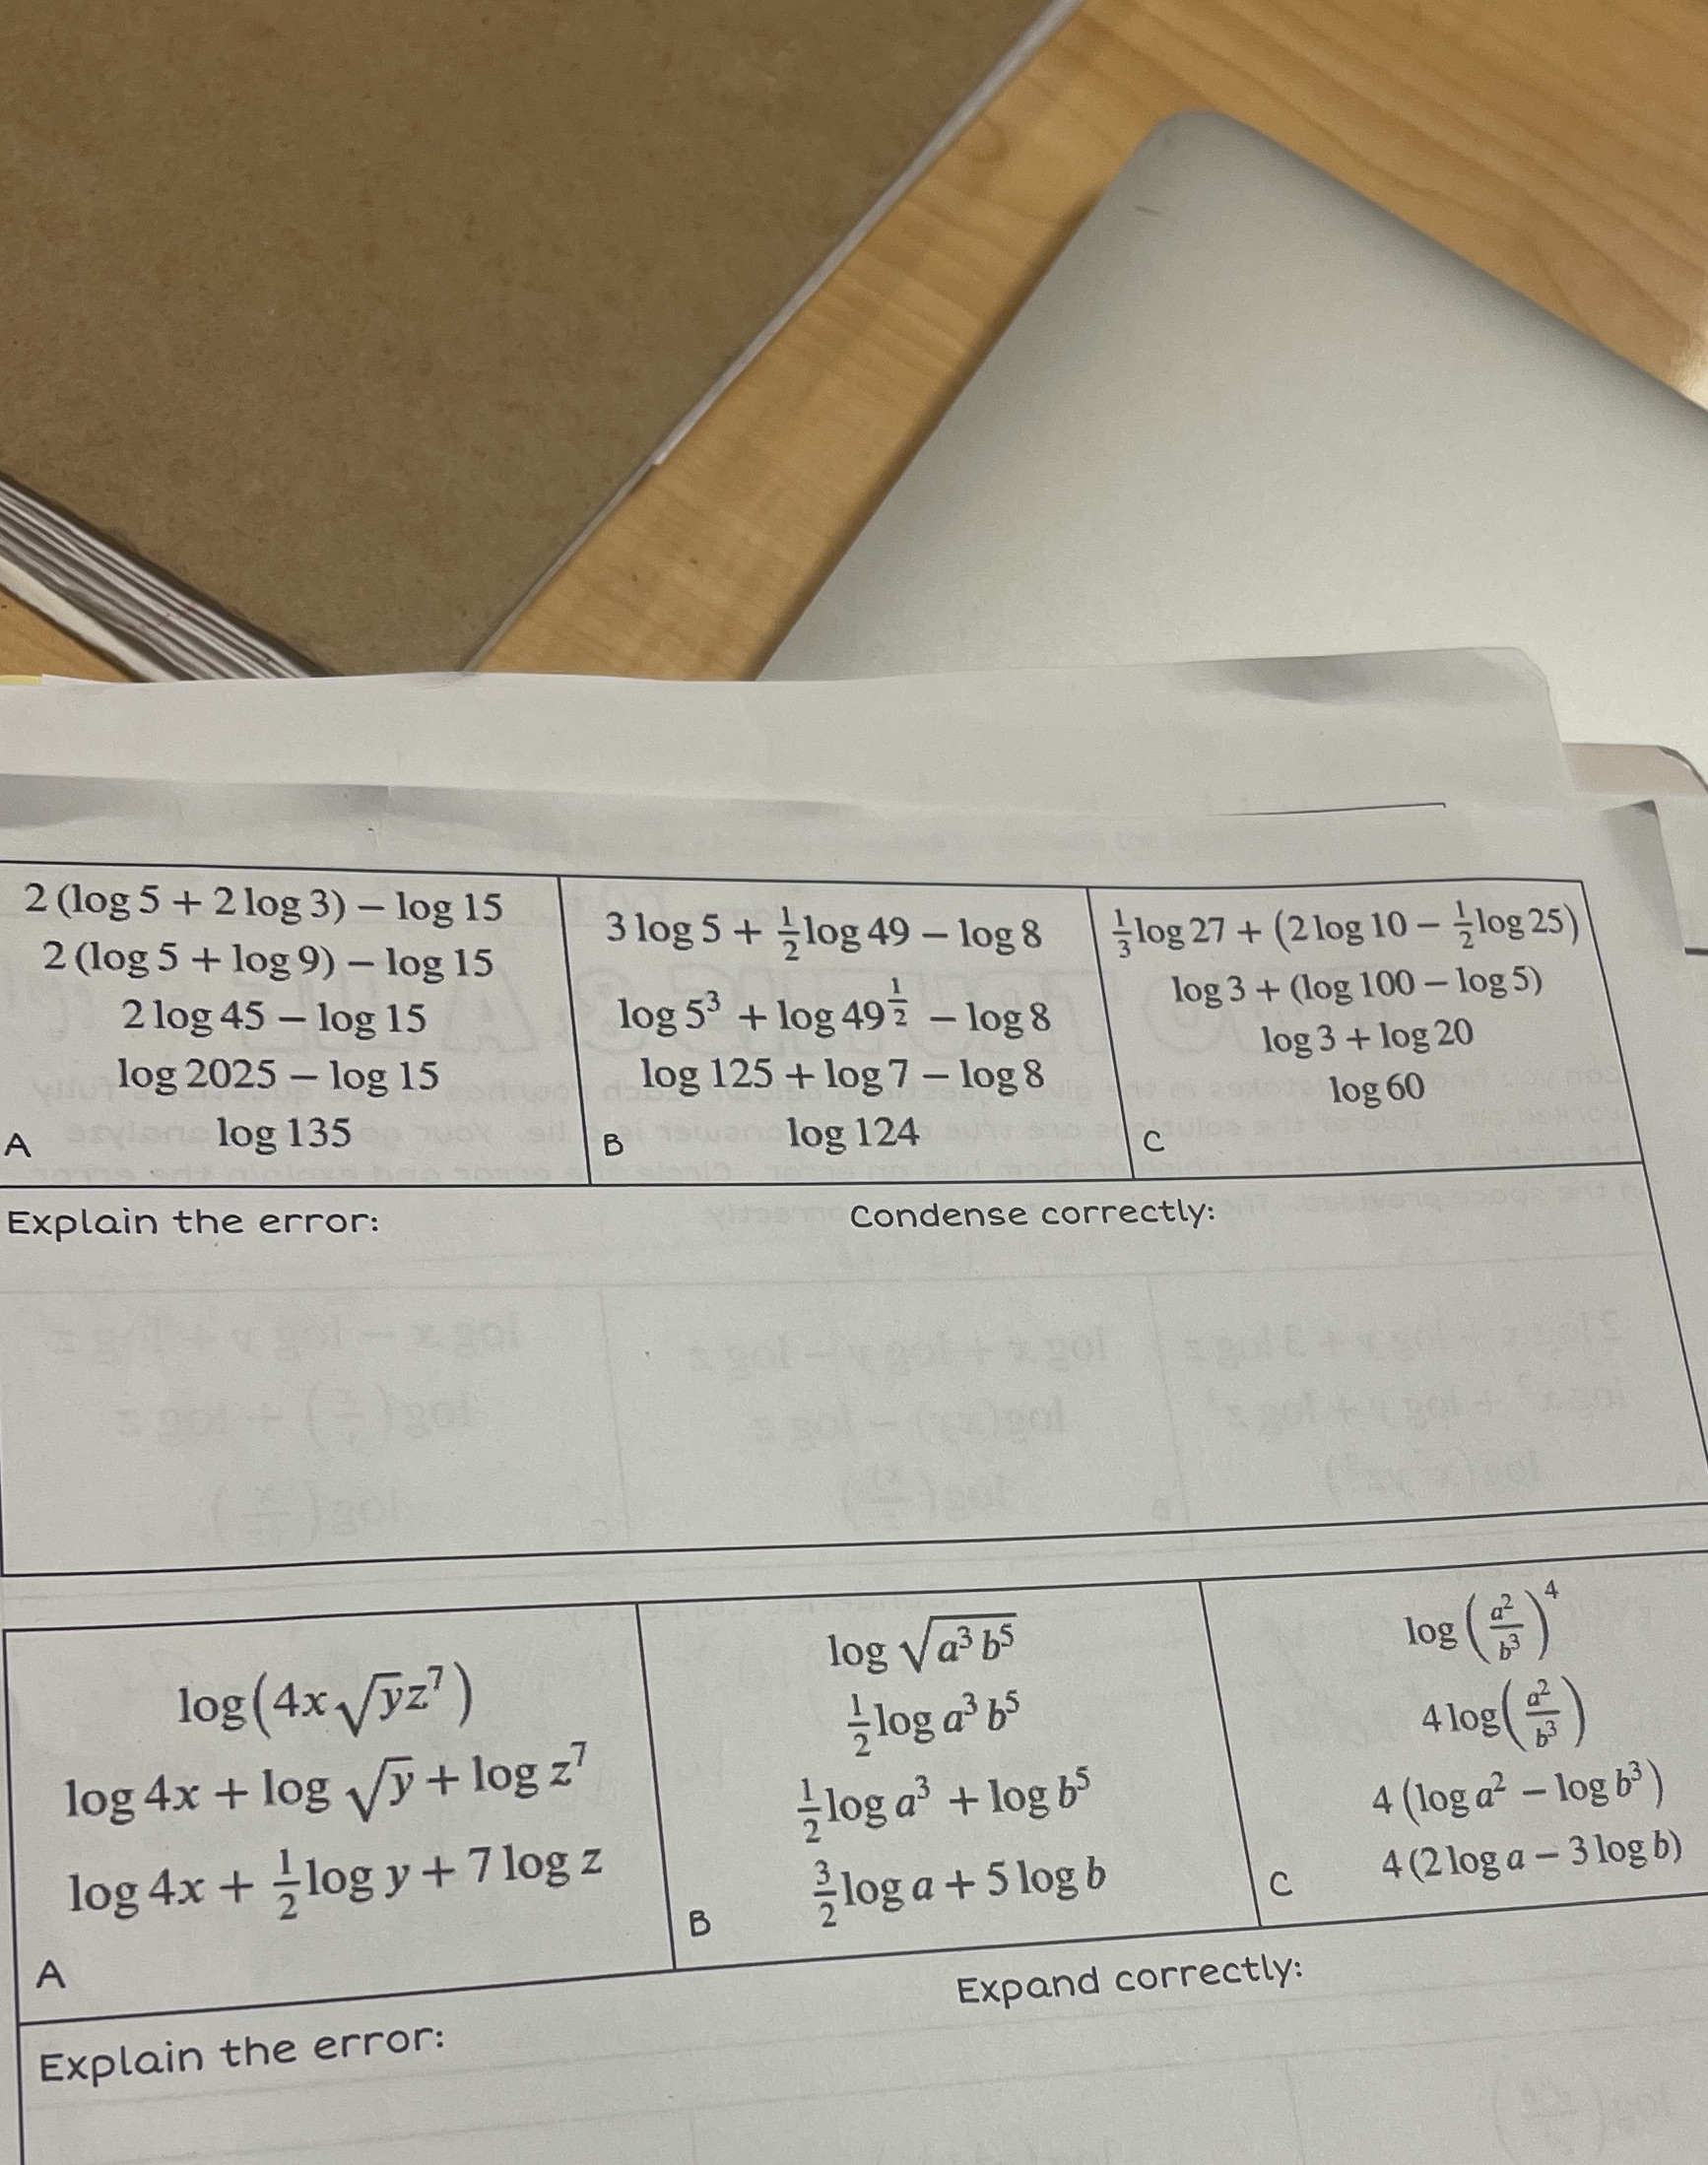 2 (log 5 + 2 log 3) – log 15
2 (log 5 + log 9) – log 15
2 log 45 – log 15
log 2025 – log 15
log 135
A
3 log 5 + 1/2 log 49 – log 8
log 5³ + log 49^(1/2) – log 8
log 125 + log 7 – log 8
log 124
B
1/3 log 27 + (2 log 10 – 1/2 log 25)
log 3 + (log 100 – log 5)
log 3 + log 20
log 60
C
Explain the error:
Condense correctly:
log(4x√y z⁷)
log 4x + log √y + log z⁷
log 4x + 1/2 log y + 7 log z
A
log √(a³b⁵)
1/2 log a³b⁵
1/2 log a³ + log b⁵
3/2 log a + 5 log b
B
log (a²/b³)⁴
4 log(a²/b³)
4 (log a² – log b³)
4 (2 log a – 3 log b)
C
Explain the error:
Expand correctly: